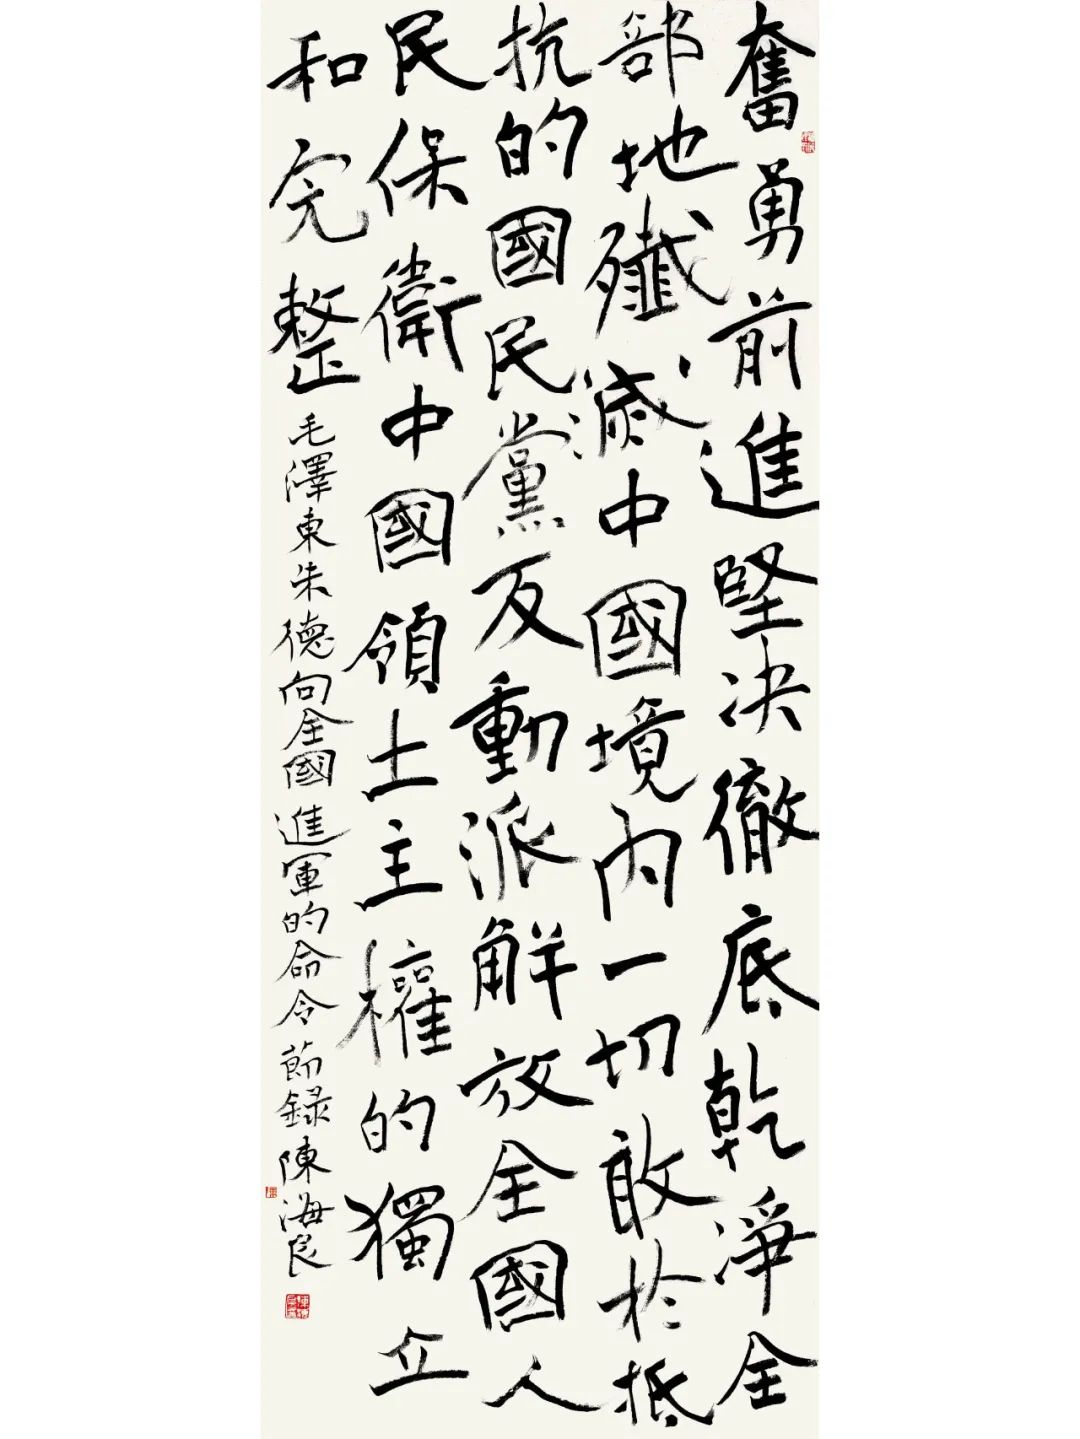 奮勇前進堅決徹底乾淨全
部地殲滅中國境内一切敢於抵
抗的國民黨反動派解放全國人
民保衛中國領土主權的獨立
和完整
毛澤東朱德向全國進軍的命令節録陳海良